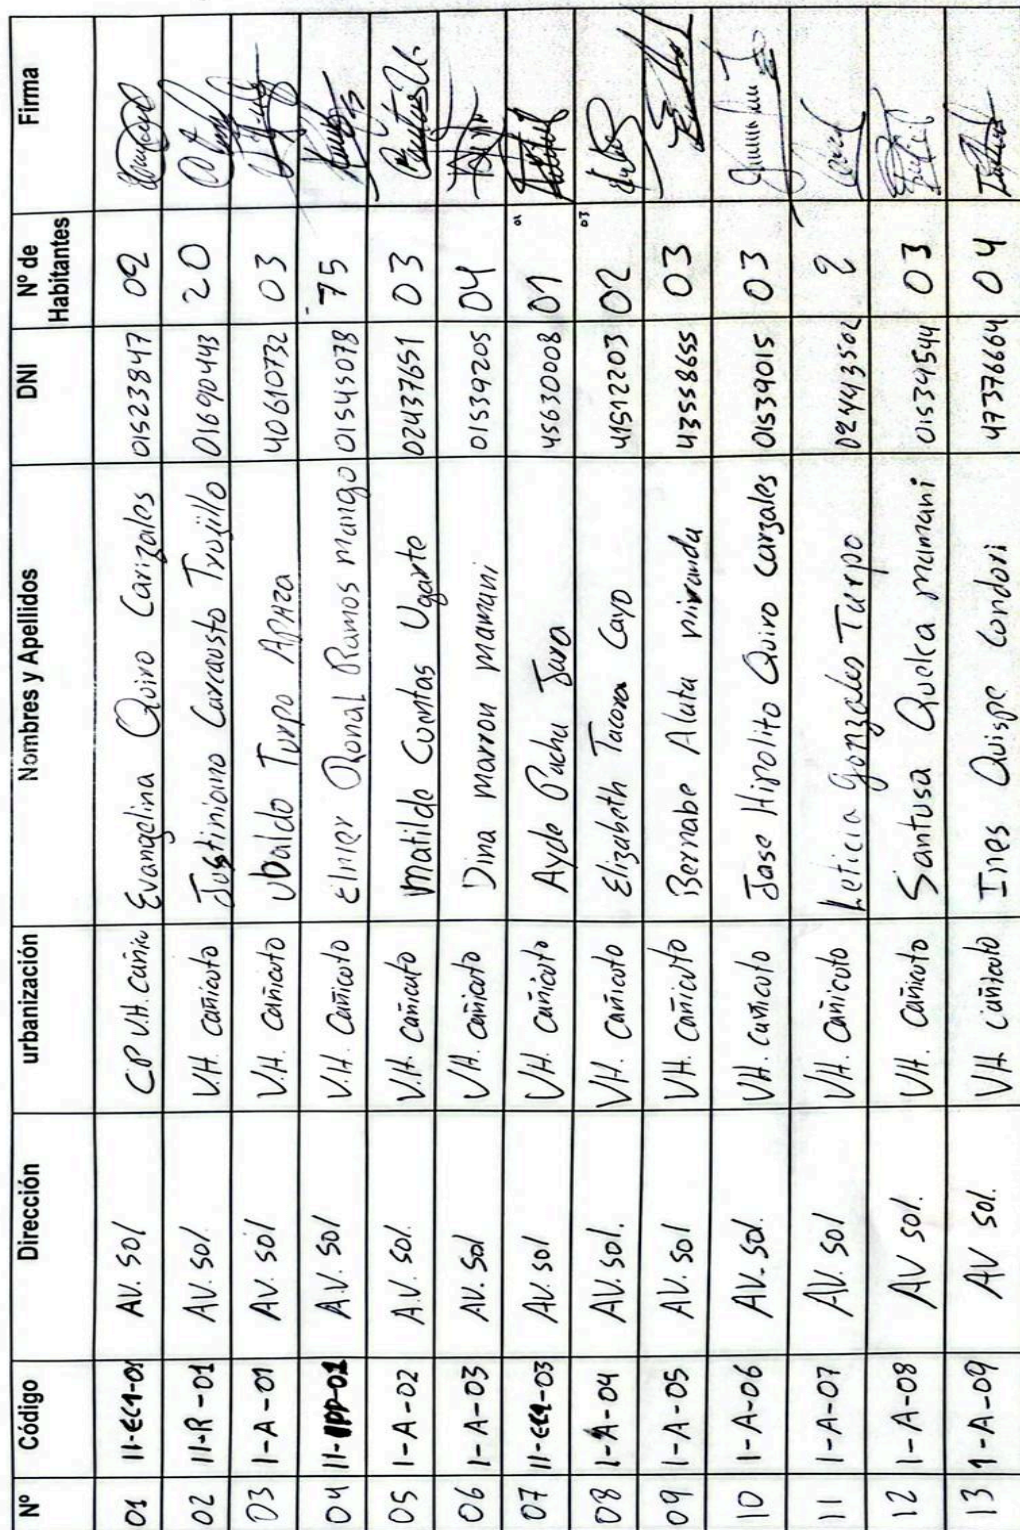 Nº Código Dirección urbanización Nombres y Apellidos DNI Nº de Habitantes Firma
01 11-EC1-01 AV. Sol CP V.H. Cañic Evangelina Quiro Carizales 01523847 02
02 11-R-01 AV. Sol V.H. Cañicuto Justiniano Carcausto Trujillo 01690443 20
03 1-A-01 AV. Sol V.H. Cañicuto Ubaldo Turpo Apaza 40610732 03
04 AV. Sol V.H. Cañicuto Elmer Ronal Ramos mango 01545078 75
05 1-A-02 AV. Sol. V.H. Cañicuto Matilde Cuntas Ugarte 02437651 03
06 1-A-03 AV. Sol V.H. Cañicuto Dina marron mamani 01539205 04
07 11-EC1-03 AV. Sol V.H. Cañicuto Ayde Pacha Jara 45630008 01 01
08 1-A-04 AV. Sol. V.H. Cañicuto Elizabeth Tacora Cayo 41512203 02 03
09 1-A-05 AV. Sol V.H. Cañicuto Bernabe Alata miranda 43558655 03
10 1-A-06 AV. Sol. V.H. Cañicuto Jose Hipolito Quiro Carzales 01539015 03
11 1-A-07 AV. Sol V.H. Cañicuto Leticia Gonzales Turpo 02443502 2
12 1-A-08 AV Sol. V.H. Cañicuto Santusa Quelca mamani 01534544 03
13 1-A-09 AV Sol. V.H. Cañicuto Ines Quispe Condori 47376664 04